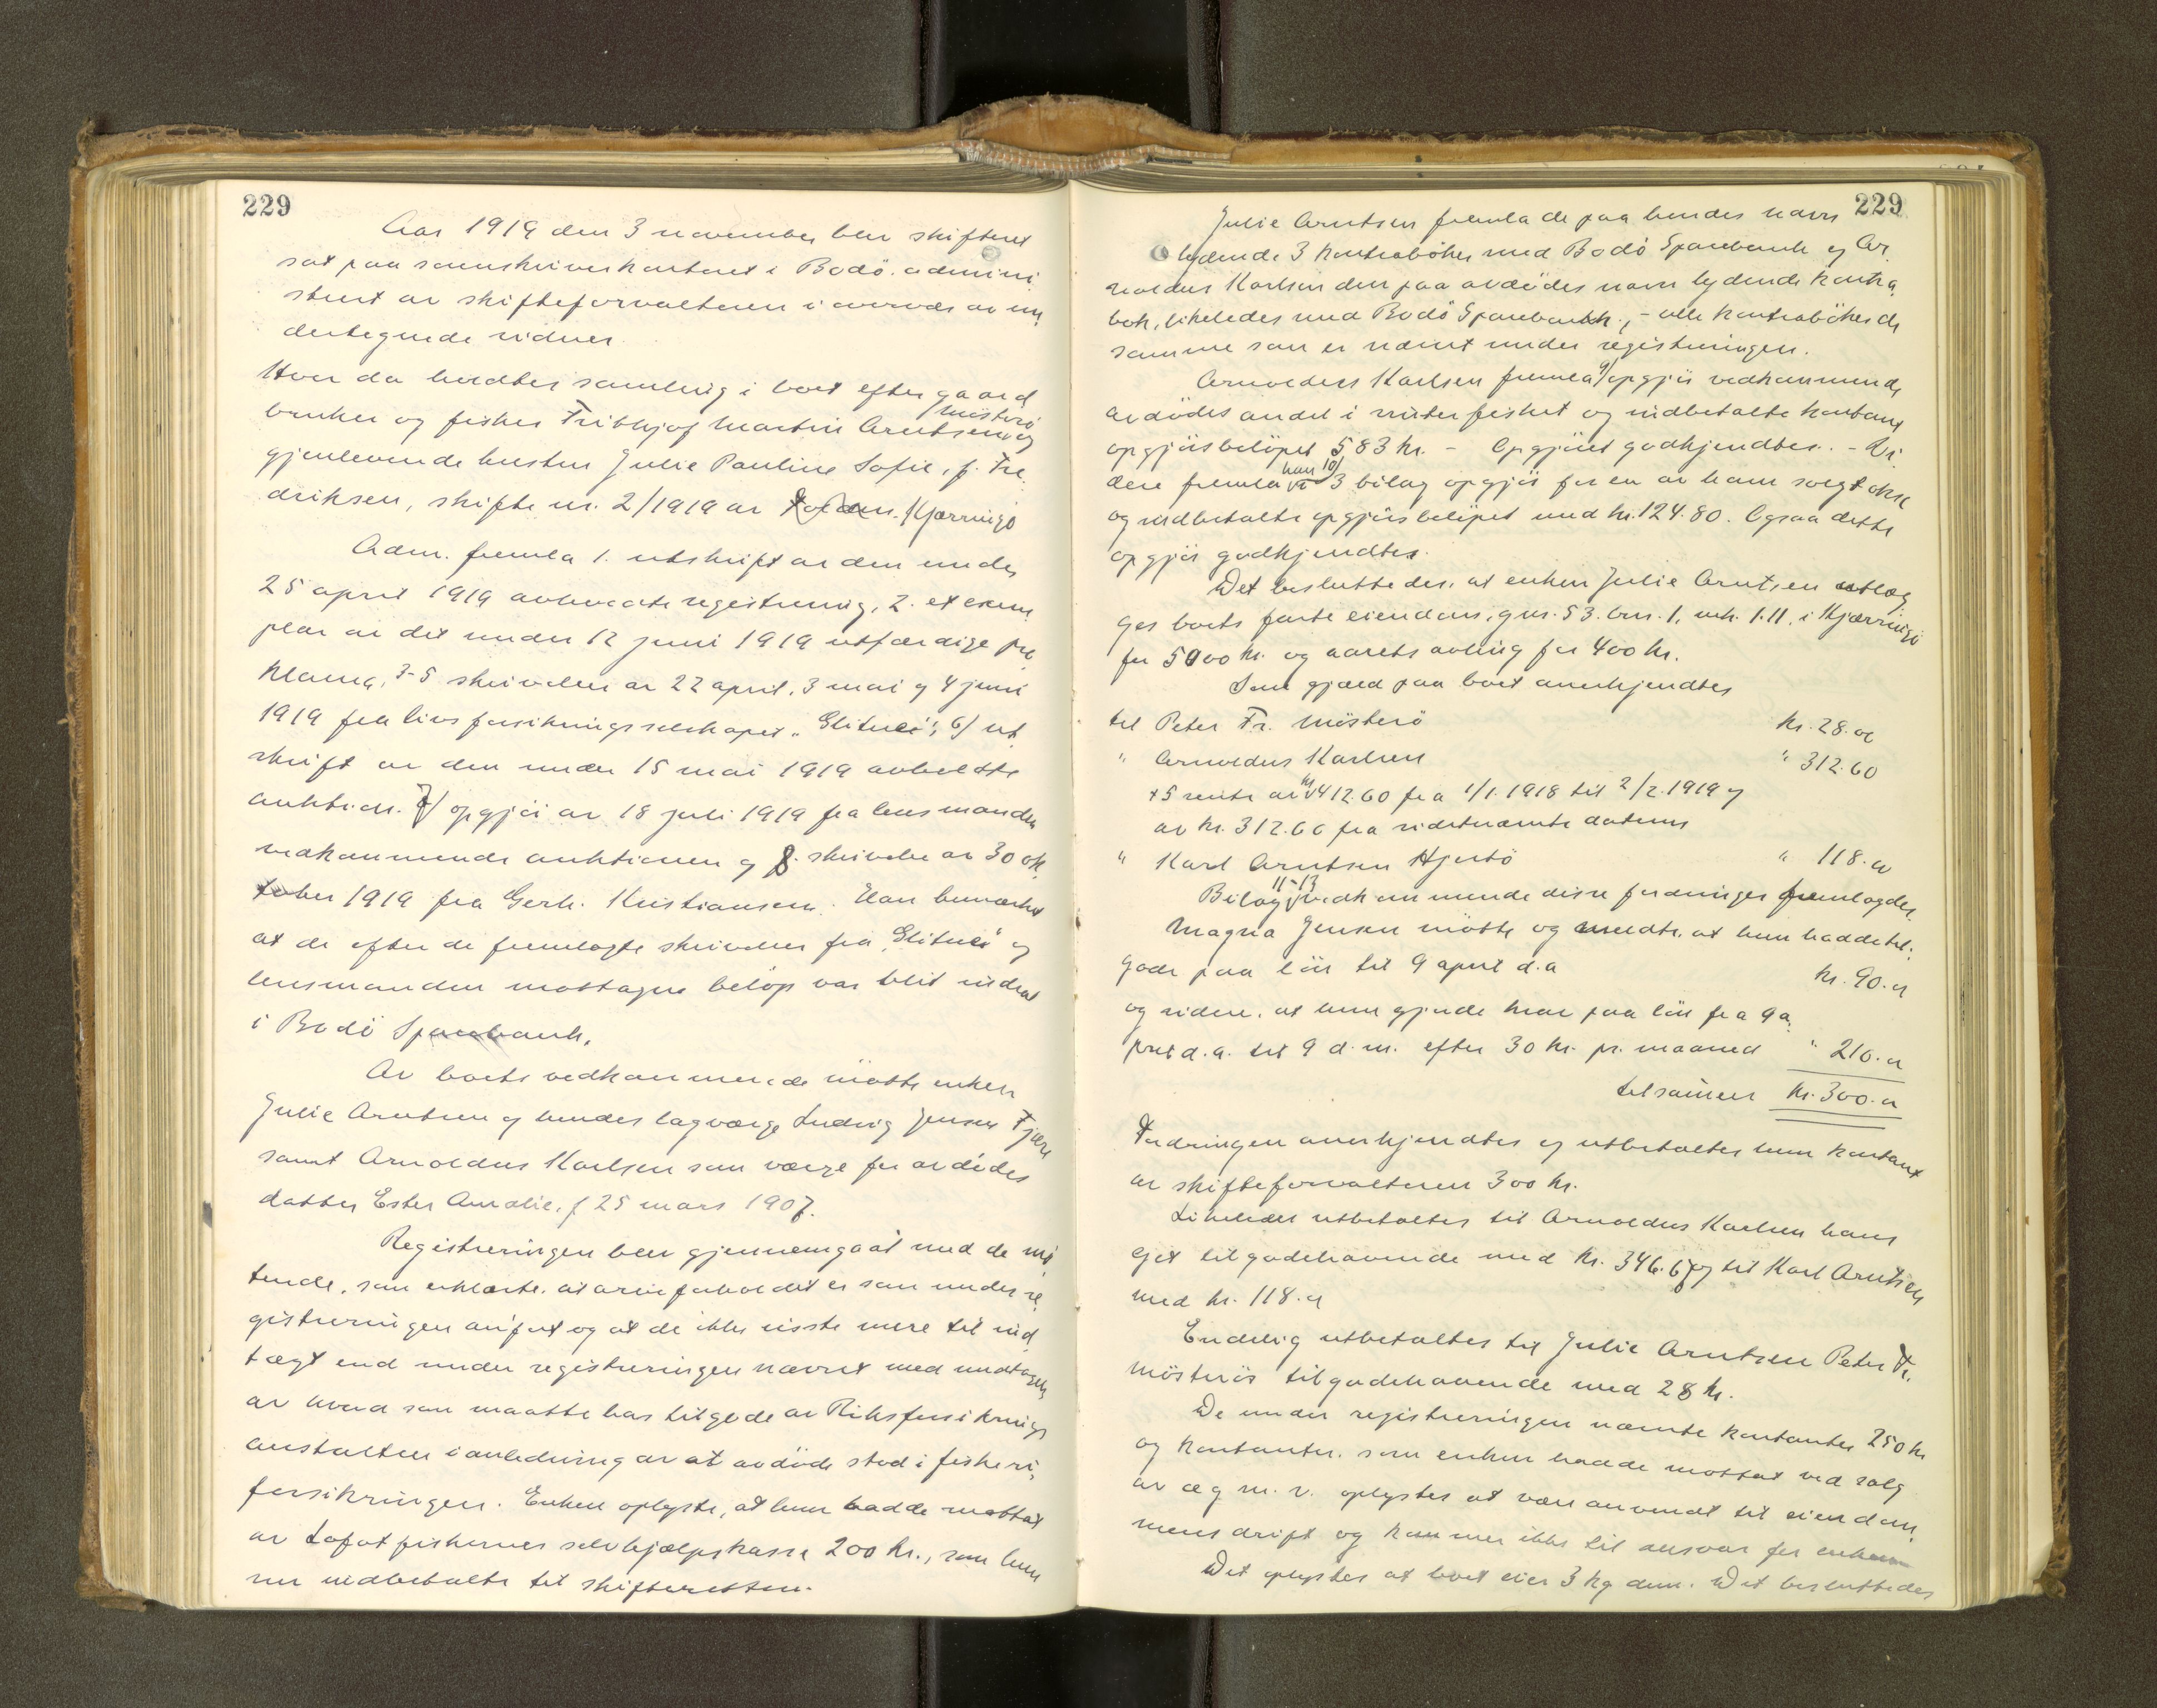 229
Aar 1919 den 3 november blev skifteret
sat paa sorenskriverkontoret i Bodö. admini
strert av skifteforvalteren i overvær av un
dertegnede vidner.
Hvor da holdtes samling i boet efter gaard
bruker og fisker Frithjof Martin Arntsen Misterö og
gjenlevende hustru Julie Pauline Sofie, f. Fre
driksen, skifte nr. 2/1919 av Kjærringö
Adm. fremla 1. utskrift av den under
25 april 1919 avholdte registrering, 2. et exem
plar av det under 12 juni 1919 utfærdige pro
klama, 3-5 skrivelser av 22 april, 3 mai og 4 juni
1919 fra livsforsikringsselskapet "Glitne", 6/ ut
skrift av den under 15 mai 1919 avholdte
auktion. 7/ opgjör av 18 juli 1919 fra lensmanden
vedkommende auktionen og 8. skrivelse av 30 ok
tober 1919 fra Gerh. Kristiansen. Han bemærket
at de efter de fremlagte skrivelser fra "Glitne" og
lensmanden mottagne belöp var blit indsat
i Bodö Sparebank.
Av boets vedkommende mötte enken
Julie Arntsen og hendes lagværge Ludvig Jensen Fjære
samt Arnoldus Karlsen som værge for avdödes
datter Ester Amalie, f 25 mars 1907.
Registreringen blev gjennemgaat med de mö
tende, som erklærte, at arveforholdet er som under re
gistreringen anfört og at de ikke visste mere til ind
tægt end under registreringen nævnt med undtagelse
av hvad som maatte has tilgode av Riksforsikrings
anstalten i anledning av at avdöde stod i fiskeri
forsikringen. Enken oplyste, at hun hadde mottat
av Lofotfiskernes selvhjælpskasse 200 kr., som hun
nu indbetalte til skifteretten.
229
Julie Arntsen fremla de paa hendes navn
lydende 3 kontraböker med Bodö Sparebank og Ar
noldus Karlsen den paa avdödes navn lydende kontra
bok, likeledes med Bodö Sparebank, - alle kontraböker de
samme som er nævnt under registreringen.
Arnoldus Karlsen fremla 9/ opgjör vedkommende
avdödes andel i vinterfisket og indbetalte kontant
opgjörsbelöpet 583 kr. - Opgjöret godkjendtes. - Vi
dere fremla han 10/ 3 bilag opgjör for en av ham solgt okse
og indbetalte opgjörsbelöpet med kr. 124.80. Ogsaa dette
opgjör godkjendtes.
Det besluttedes, at enken Julie Arntsen utlæg
ges boets faste eiendom, gnr. 53. bnr. 1, mk. 1.11, i Kjærringö
for 5000 kr. og aarets avling for 400 kr.
Som gjæld paa boet anerkjendtes
til Peter Fr. Misterö kr. 28.00
" Arnoldus Karlsen " 312.60
+ 5 rente av kr 412.60 fra 1/1. 1918 til 2/2. 1919 og
av kr. 312.60 fra sidstnævnte datum
" Karl Arntsen Hjertö " 118.00
Bilag 11-13 vedkommende disse fordringer fremlagdes.
Magna Jensen mötte og meldte, at hun hadde til
gode paa lön til 9 april d.a kr. 90.00
og videre, at hun gjorde krav paa lön fra 9 a
pril d.a. til 9 d.m. efter 30 kr. pr. maaned " 210.00
tilsammen kr. 300.00
Fordringen anerkjendtes og utbetaltes hun kontant
av skifteforvalteren 300 kr.
Likeledes utbetaltes til Arnoldus Karlsen hans
 tilgodehavende med kr. 346.67 og til Karl Arntsen
med kr. 118.00
Endelig utbetaltes til Julie Arntsen Peter Fr.
Misterös tilgodehavende med 28 kr.
De under registreringen nævnte kontanter 250 kr
og kontanter, som enken hadde mottat ved salg
av æg m.v. oplystes at være anvendt til eiendom
mens drift og kommer ikke til ansvar for enken
Det oplystes at boet eier 3 kg dun. Det besluttedes